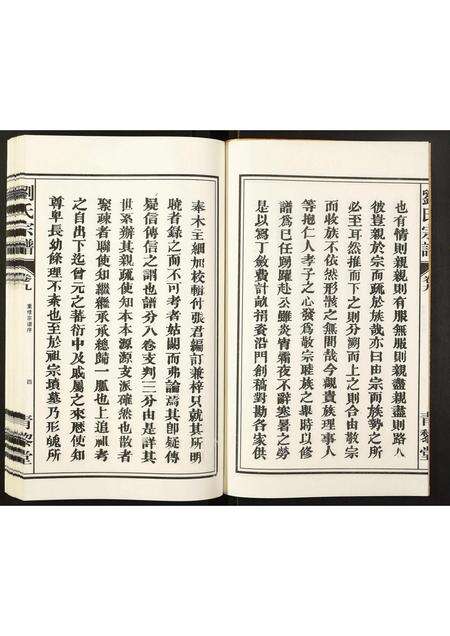 劉氏宗譜
卷九
青黎堂
也有情則親親則有服無服則親盡親盡則路人
彼豈親於宗而疏於族哉亦曰由宗而族勢之所
必至耳然推而下之則分溯而上之則合由敬宗
而收族不依然形骸之無間哉今觀貴族理事人
等抱仁人孝子之心發爲敬宗睦族之舉時以修
譜爲已任踴躍赴公雖炎宵霜夜不辭寒暑之勞
是以寫丁斂費計畝捐資沿門創稿對勘各家供
奉木主細加校輯付張君編訂兼梓只就其所明
曉者錄之而不可考者姑闕而弗論焉其卽疑傳
疑信傳信之謂也譜分八卷支判三分由是詳其
世系辦其親疏使知本本源源支派確然也散者
聚疎者聯使知繼繼承承總歸一脈也上追祖考
之自出下迄曾元之蕃衍中及戚屬之來歷使知
尊卑長幼條理不紊也至於祖宗墳墓乃形魄所
劉氏宗譜
卷九
重修宗譜序
四
青黎堂